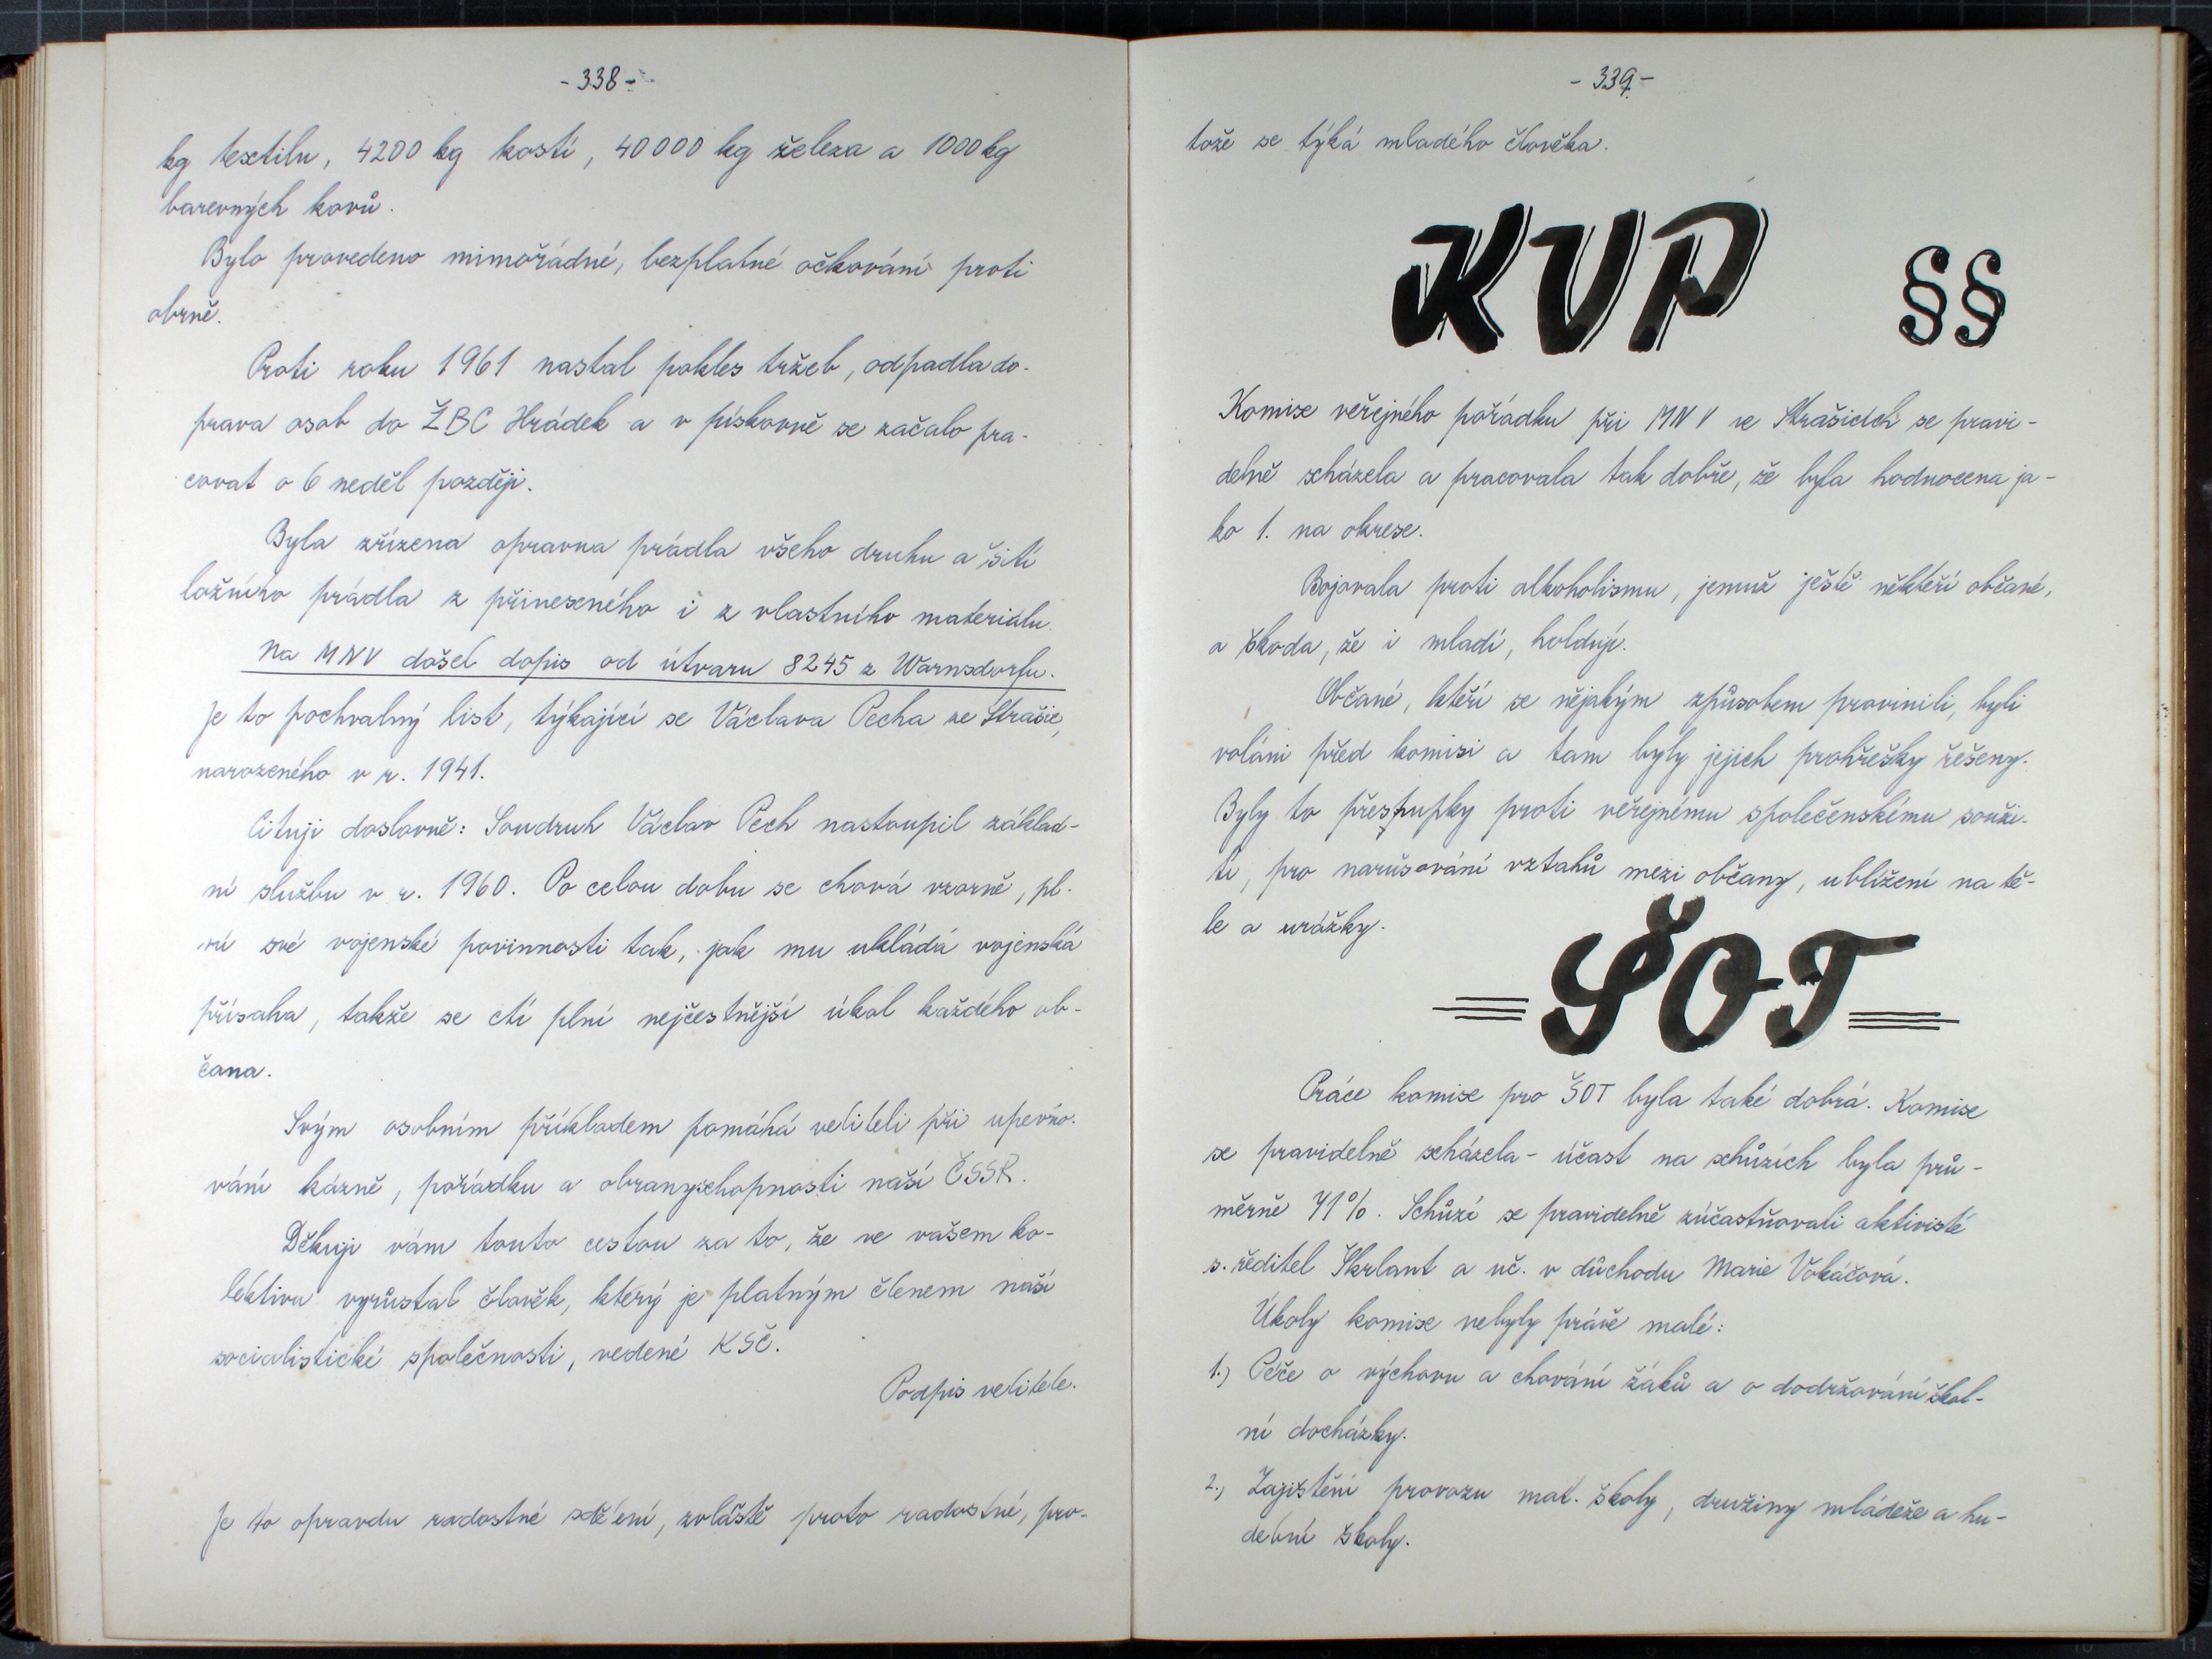 - 338 -
kg textilu, 4200 kg kostí, 40000 kg železa a 1000 kg
barevných kovů.
Bylo provedeno mimořádné, bezplatné očkování proti
obrně.
Proti roku 1961 nastal pokles tržeb, odpadla do-
prava osob do ŽBC Hrádek a v pískovně se začalo pra-
covat o 6 neděl později.
Byla zřízena opravna prádla všeho druhu a šití
ložního prádla z přineseného i z vlastního materiálu.
Na MNV došel dopis od útvaru 8245 z Warnsdorfu.
Je to pochvalný list, týkající se Václava Pecha ze Strašic,
narozeného v r. 1941.
Cituji doslovně: Soudruh Václav Pech nastoupil základ-
ní službu v r. 1960. Po celou dobu se chová vzorně, pl-
ní své vojenské povinnosti tak, jak mu ukládá vojenská
přísaha, takže se ctí plní nejčestnější úkol každého ob-
čana.
Svým osobním příkladem pomáhá veliteli při upevňo-
vání kázně, pořádku a obranyschopnosti naší ČSSR.
Děkuji vám touto cestou za to, že ve vašem ko-
lektivu vyrůstal člověk, který je platným členem naší
socialistické společnosti, vedené KSČ.
Podpis velitele.
Je to opravdu radostné sdělení, zvláště proto radostné, pro-
- 339 -
tože se týká mladého člověka.
KVP §§
Komise veřejného pořádku při MNV ve Strašicích se pravi-
delně scházela a pracovala tak dobře, že byla hodnocena ja-
ko 1. na okrese.
Bojovala proti alkoholismu, jemuž ještě někteří občané,
a škoda, že i mladí, holdují.
Občané, kteří se nějakým způsobem provinili, byli
voláni před komisi a tam byly jejich prohřešky řešeny.
Byly to přestupky proti veřejnému společenskému souži-
tí, pro narušování vztahů mezi občany, ublížení na tě-
le a urážky.
ŠOT
Práce komise pro ŠOT byla také dobrá. Komise
se pravidelně scházela - účast na schůzích byla prů-
měrně 71%. Schůzí se pravidelně zúčastňovali aktivisté
s. ředitel Škrlant a uč. v důchodu Marie Vokáčová.
Úkoly komise nebyly právě malé:
1.) Péče o výchovu a chování žáků a o dodržování škol-
ní docházky.
2.) Zajištění provozu mat. školy, družiny mládeže a hu-
dební školy.